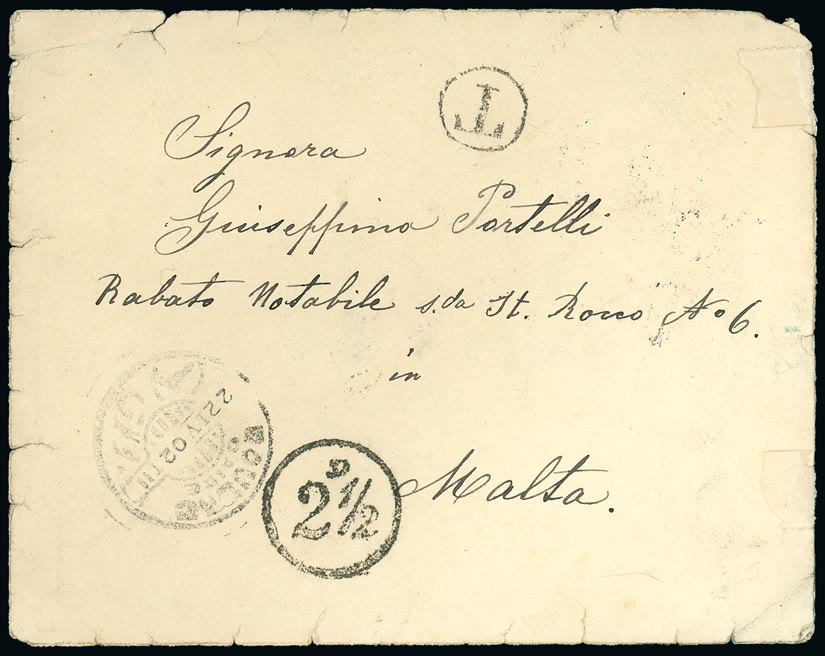 T
Signora
Giuseppina Portelli
Rabato Notabile s.da St. Rocco No 6.
in
Malta.
22 IV 02
D
2 1/2